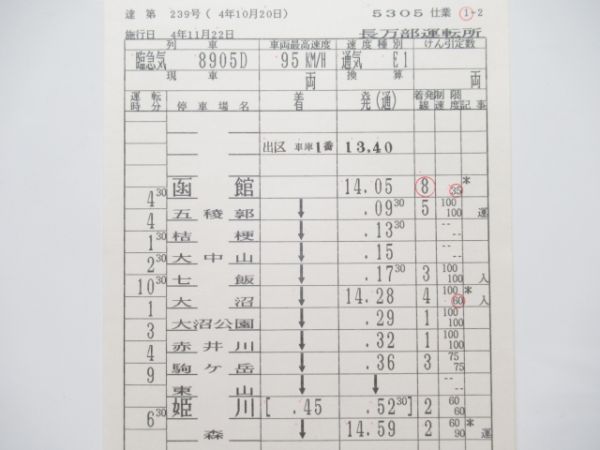 達 第 239号 ( 4年10月20日) 5305 仕業 1-2
施行日 4年11月22日 長万部運転所
列車 車両最高速度 速度種別 けん引定数
臨急気 8905D 95 KM/H 通気 E1
現車 両 換算 両
運転時分 停車場名 着 発(通) 着発線 制限速度 記事
出区 車庫1番 13.40
函館 14.05 8 35 *
4 30
五稜郭 ↓ .09 30 5 100 100 運
4
桔梗 ↓ .13 30 -- --
1 30
大中山 ↓ .15 -- --
2 30
七飯 ↓ .17 30 3 100 100 入
10 30
大沼 ↓ 14.28 4 100 60 * 入
1
大沼公園 ↓ .29 1 100 100
3
赤井川 ↓ .32 1 100 100
4
駒ヶ岳 ↓ .36 3 75 75
9
東山 ↓ ↓ -- --
姫川 [ .45 .52 30 ] 2 60 60
6 30
森 ↓ 14.59 2 60 90 * 運